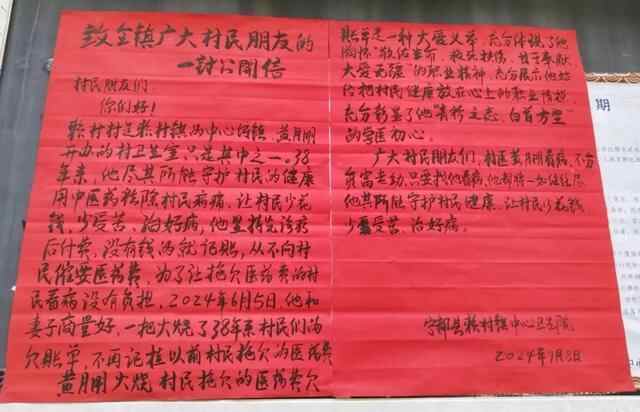 致全镇广大村民朋友的
一封公开信
村民朋友们:
你们好!
赖村村是赖村镇的中心圩镇,黄月朋
开办的村卫生室只是其中之一。38
年来,他尽其所能守护村民的健康
用中医药祛除村民病痛,让村民少花
钱、少受苦、治好病,他坚持先诊疗
后付费,没有钱的就记账,从不向村
民催要医药费,为了让拖欠医药费的村
民看病没有负担,2024年6月5日,他和
妻子商量好,一把火烧了38年来村民们的
欠账单,不再记挂以前村民拖欠的医药费
黄月朋火烧村民拖欠的医药费欠
账单是一种大爱义举,充分体现了他
胸怀“敬佑生命、救死扶伤、甘于奉献
大爱无疆”的职业精神,充分展示他始
终把村民健康放在心上的职业情操,
充分彰显了他“青衿之志,白首方坚”
的学医初心。
广大村民朋友们,村医黄月朋看病,不分
贫富老幼,只要找他看病,他都将一如既往尽
他其所能守护村民健康,让村民少花钱
少受苦、治好病。
宁都县赖村镇中心卫生院
2024年7月8日
期